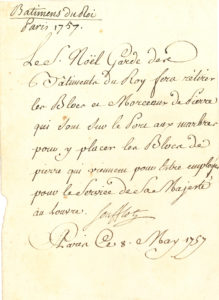 Batimens du Roi
Paris 1757.
Le S. Noël Garde des
Bâtiments du Roy fera retirer
les Blocs et Morceaux de Pierre
qui sont sur le Port aux marbres
pour y placer les Blocs de
pierre qui viennent pour Estre employés
pour le Service de Sa Majesté
au louvre. Soufflot
Paris Ce 8. May 1757